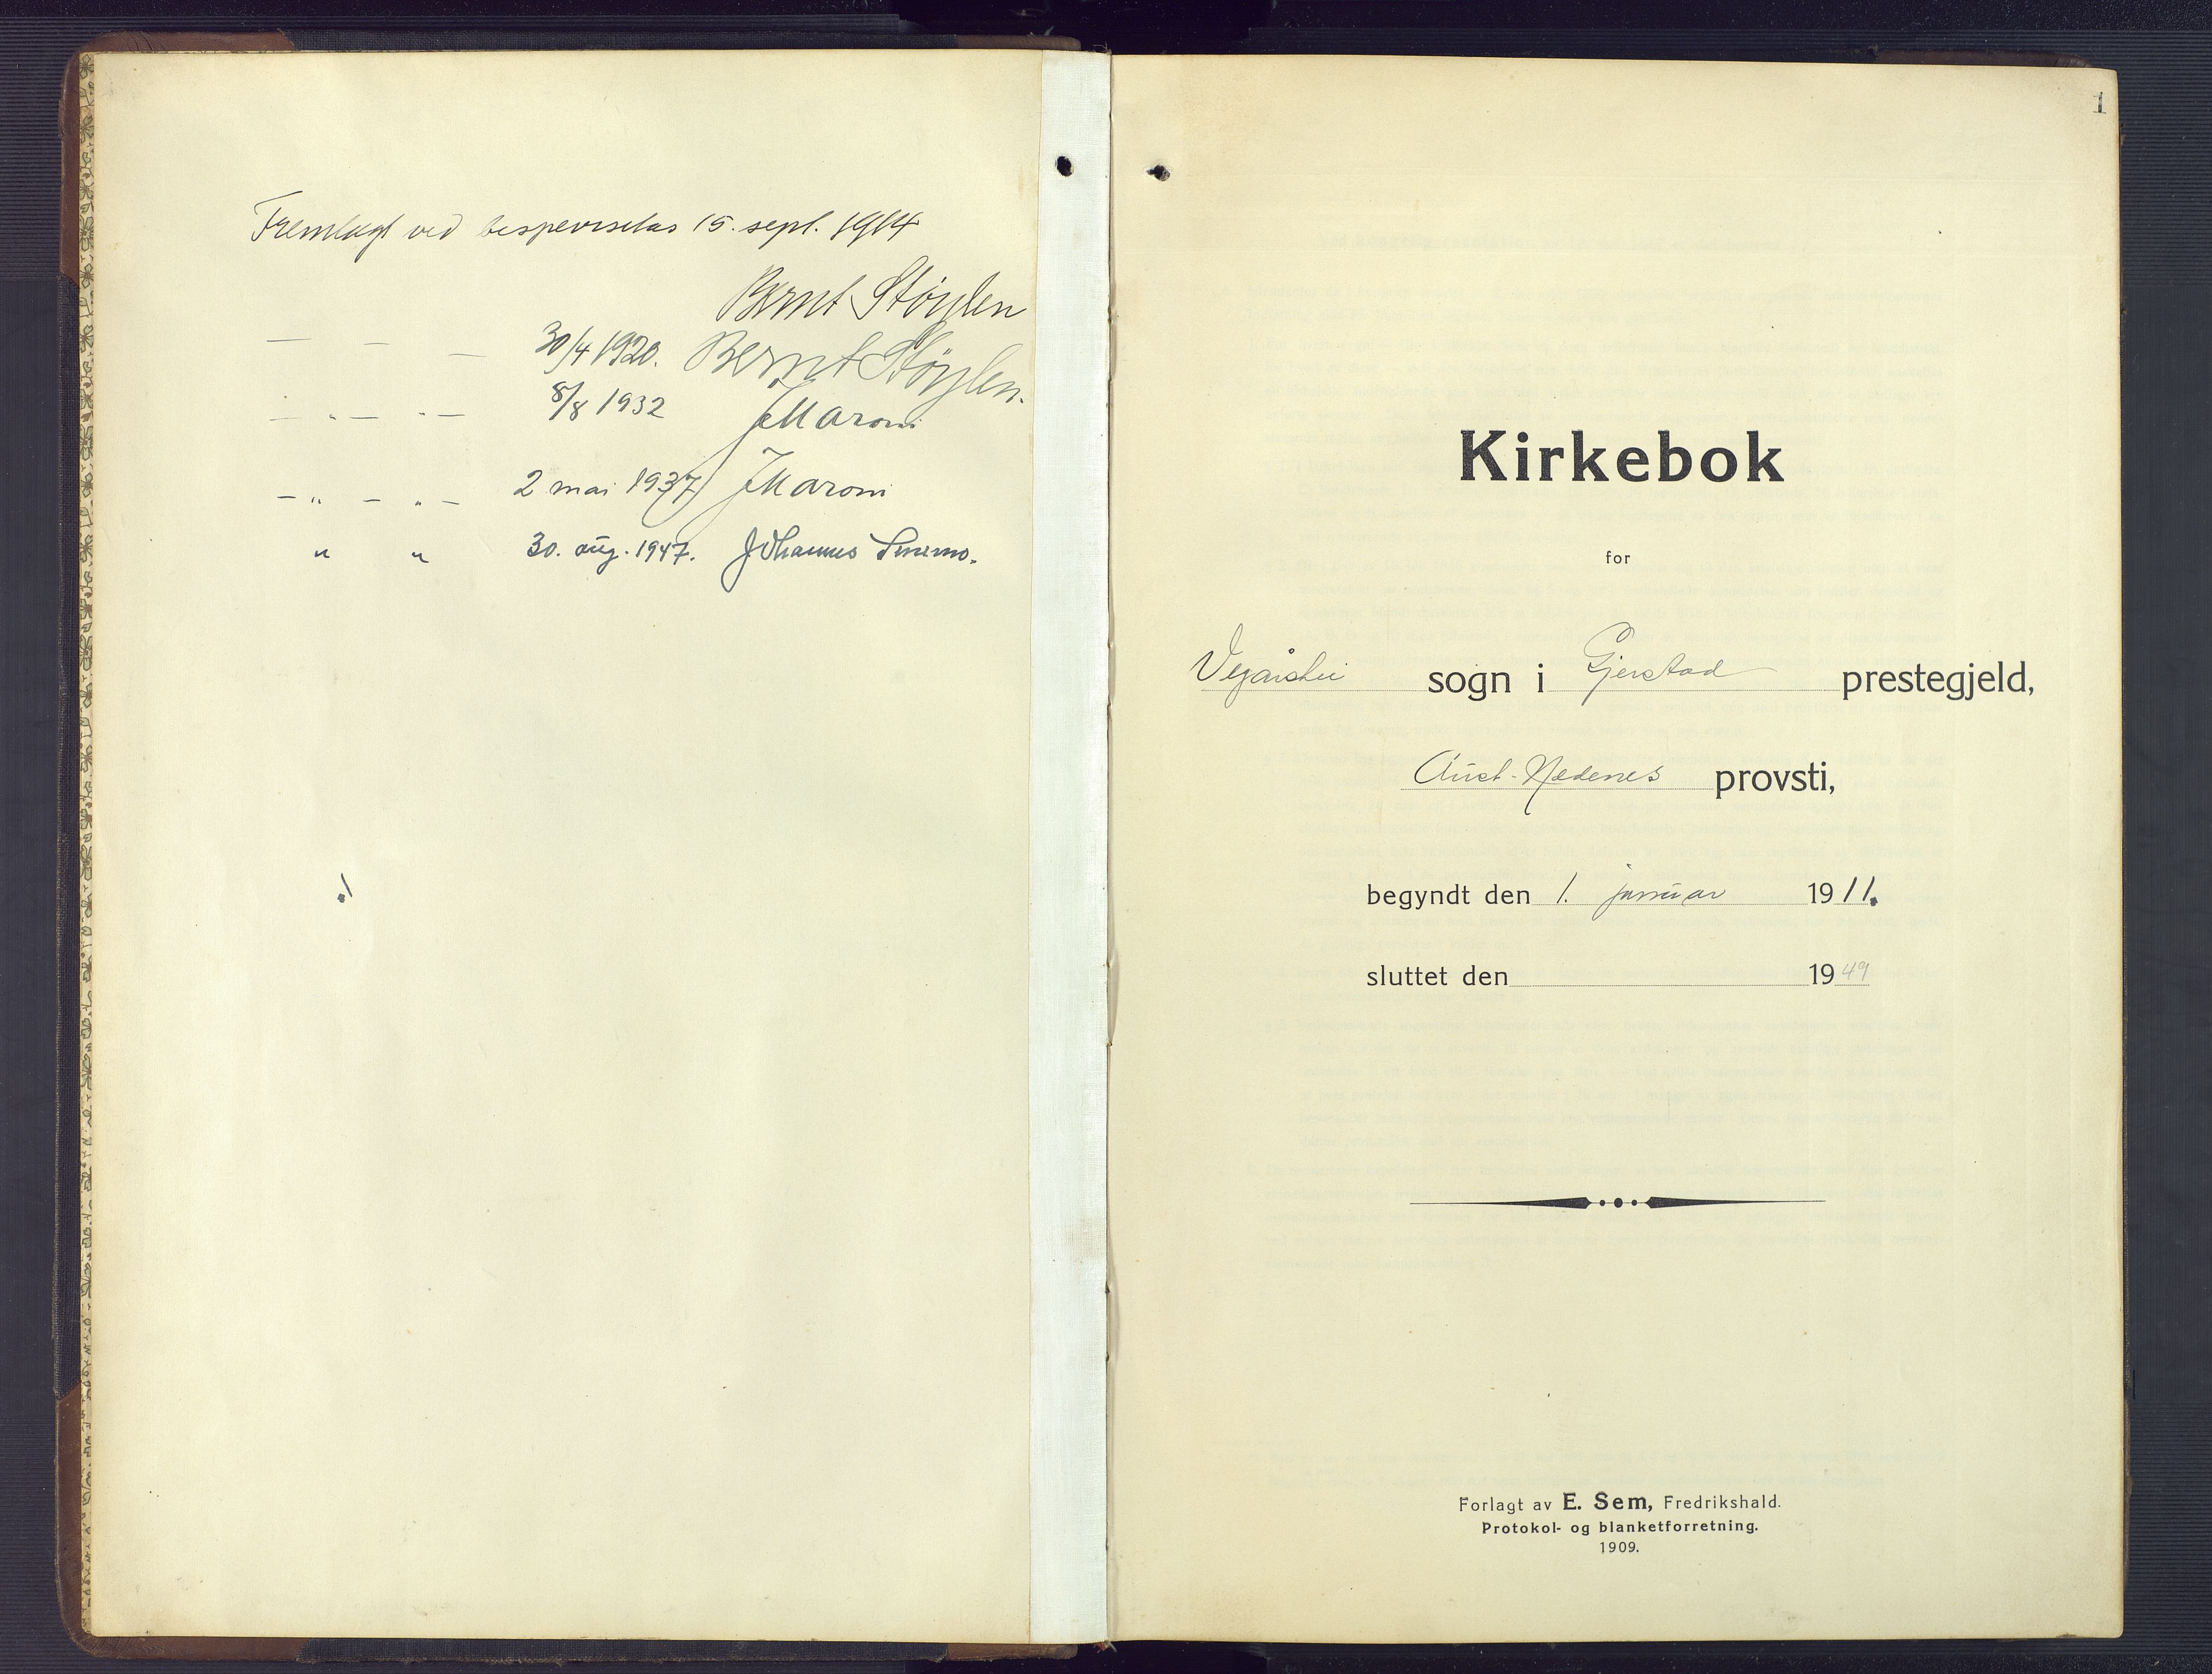 Fremlagt ved bispevisitas 15. sept. 1914
Bernt Støylen
— — — 30/4 1920. Bernt Støylen.
— " — " — 8/8 1932 JMaroni
— " — " — 2 mai 1937 JMaroni
" " 30. aug. 1947. Johannes Smemo.
1
Kirkebok
for
Vegårshei sogn i Gjerstad prestegjeld,
Aust-Nedenes provsti,
begyndt den 1. januar 1911.
sluttet den 1949
Forlagt av E. Sem, Fredrikshald.
Protokol- og blanketforretning.
1909.